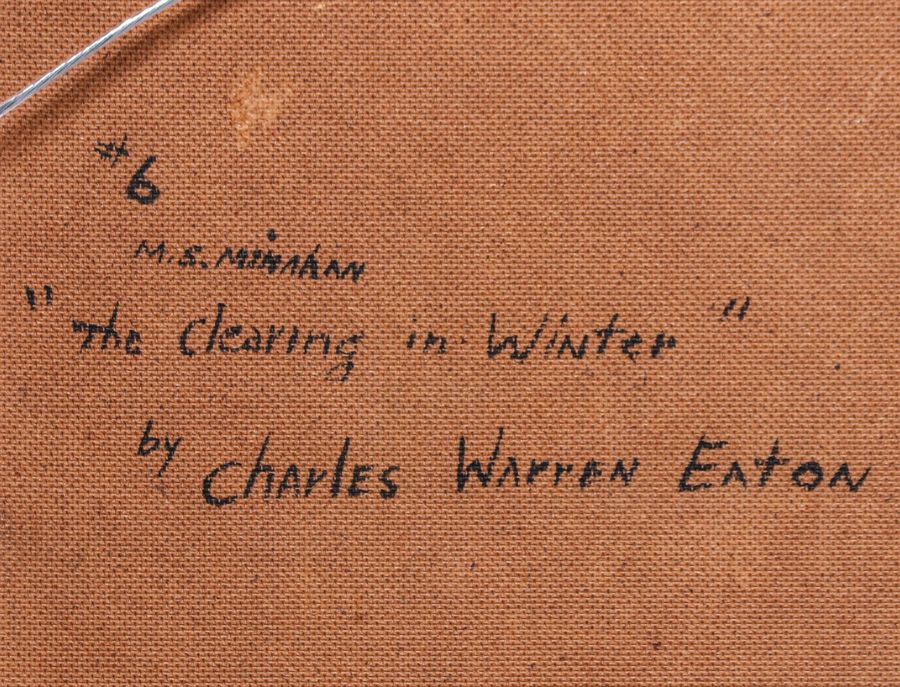 #6
M.S. Minahan
"The Clearing in Winter"
by Charles Warren Eaton